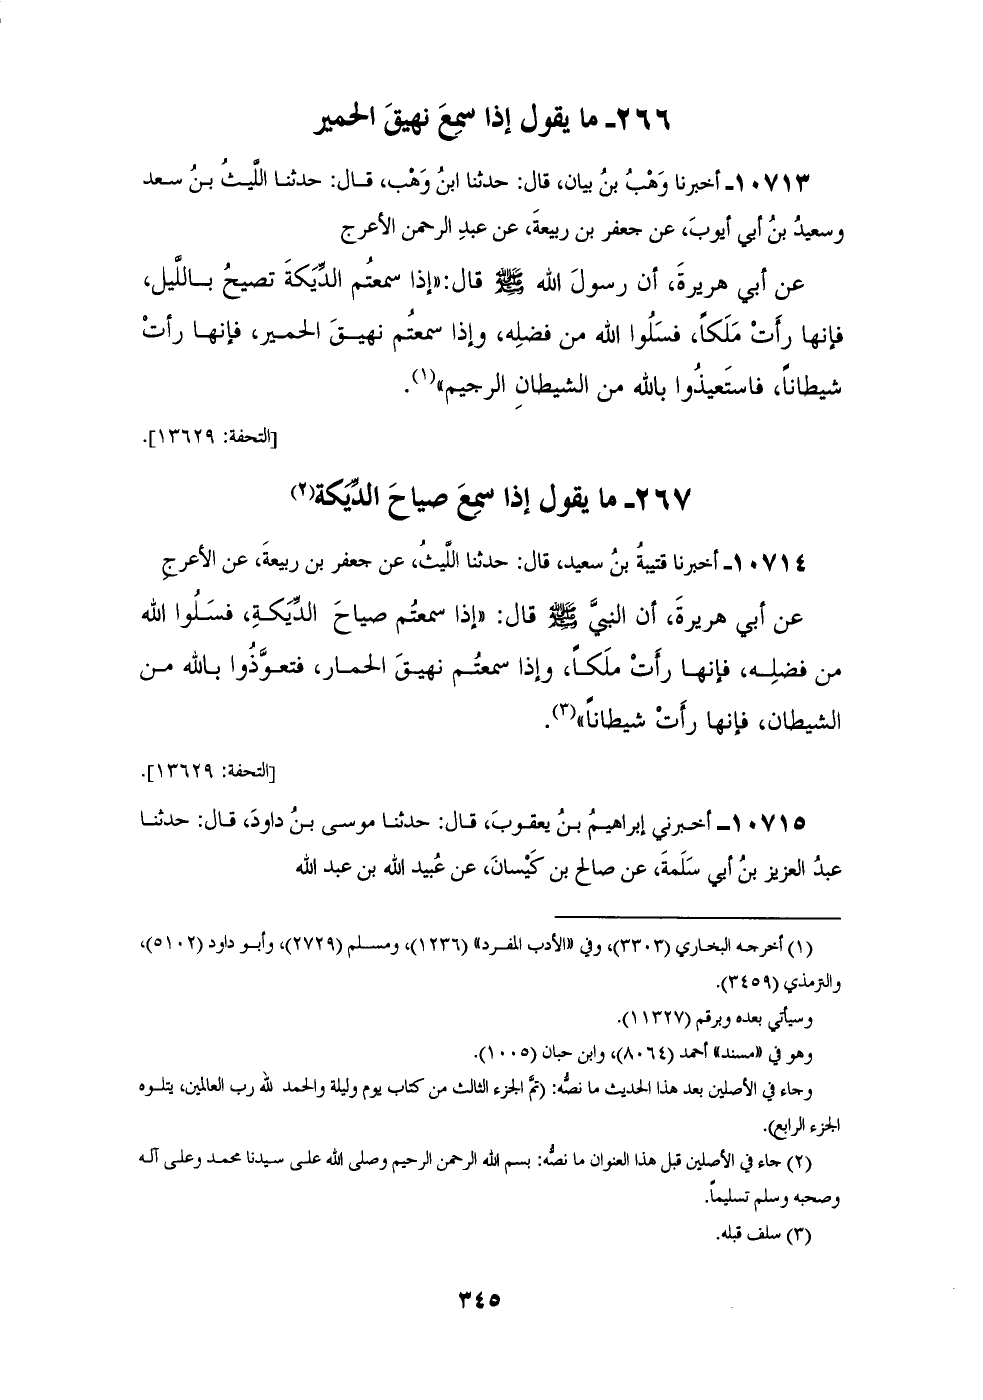 ٢٦٦ـ ما يقول إذا سمِعَ نهيقَ الحمير
١٠٧١٣ـ أخبرنا وَهْبُ بنُ بيان، قال: حدثنا ابنُ وَهْب، قـال: حدثنا اللَّيـثُ بـنُ سـعد
وسعيدُ بنُ أبي أيوبَ، عن جعفر بن ربيعةَ، عن عبدِ الرحمن الأعرج
عن أبي هريرةَ، أن رسولَ الله ﷺ قال:«إذا سمعتُم الدِّيَكةَ تصيحُ بـاللَّيل،
فإنها رأَتْ مَلَكاً، فسَلُوا الله من فضلِه، وإذا سمعتُم نهيـقَ الحمـير، فإنهـا رأتْ
شيطاناً، فاستَعيذُوا بالله من الشيطانِ الرجيم»(١).
[التحفة: ١٣٦٢٩].
٢٦٧ـ ما يقول إذا سمِعَ صياحَ الدِّيَكة(٢)
١٠٧١٤ـ أخبرنا قتيبةُ بنُ سعيد، قال: حدثنا اللَّيثُ، عن جعفر بن ربيعةَ، عن الأعرجِ
عن أبي هريرةَ، أن النبيَّ ﷺ قال: «إذا سمعتُم صياحَ الدِّيَكـةِ، فسَلُوا الله
من فضلِـه، فإنهـا رأَتْ ملَكـاً، وإذا سمعتُـم نهيـقَ الحمـار، فتعـوَّذُوا بـالله مـن
الشيطان، فإنها رأَتْ شيطاناً»(٣).
[التحفة: ١٣٦٢٩].
١٠٧١٥ـ أخـبرني إبراهيـمُ بـنُ يعقـوبَ، قـال: حدثنـا موسـى بـنُ داودَ، قـال: حدثنـا
عبدُ العزيز بنُ أبي سَلَمةَ، عن صالح بن كَيْسانَ، عن عُبيد الله بن عبد الله
(١) أخرجـه البخـاري (٣٣٠٣)، وفي «الأدب المفـرد» (١٢٣٦)، ومسـلم (٢٧٢٩)، وأبـو داود (٥١٠٢)،
والترمذي (٣٤٥٩).
وسيأتي بعده وبرقم (١١٣٢٧).
وهو في «مسند» أحمد (٨٠٦٤)، وابن حبان (١٠٠٥).
وجاء في الأصلين بعد هذا الحديث ما نصُّه: (تمَّ الجزء الثالث من كتاب يوم وليلة والحمد لله رب العالمين، يتلـوه
الجزء الرابع).
(٢) جاء في الأصلين قبل هذا العنوان ما نصُّه: بسم الله الرحمن الرحيم وصلى الله علـى سـيدنا محمـد وعلـى آلـه
وصحبه وسلم تسليماً.
(٣) سلف قبله.
٣٤٥